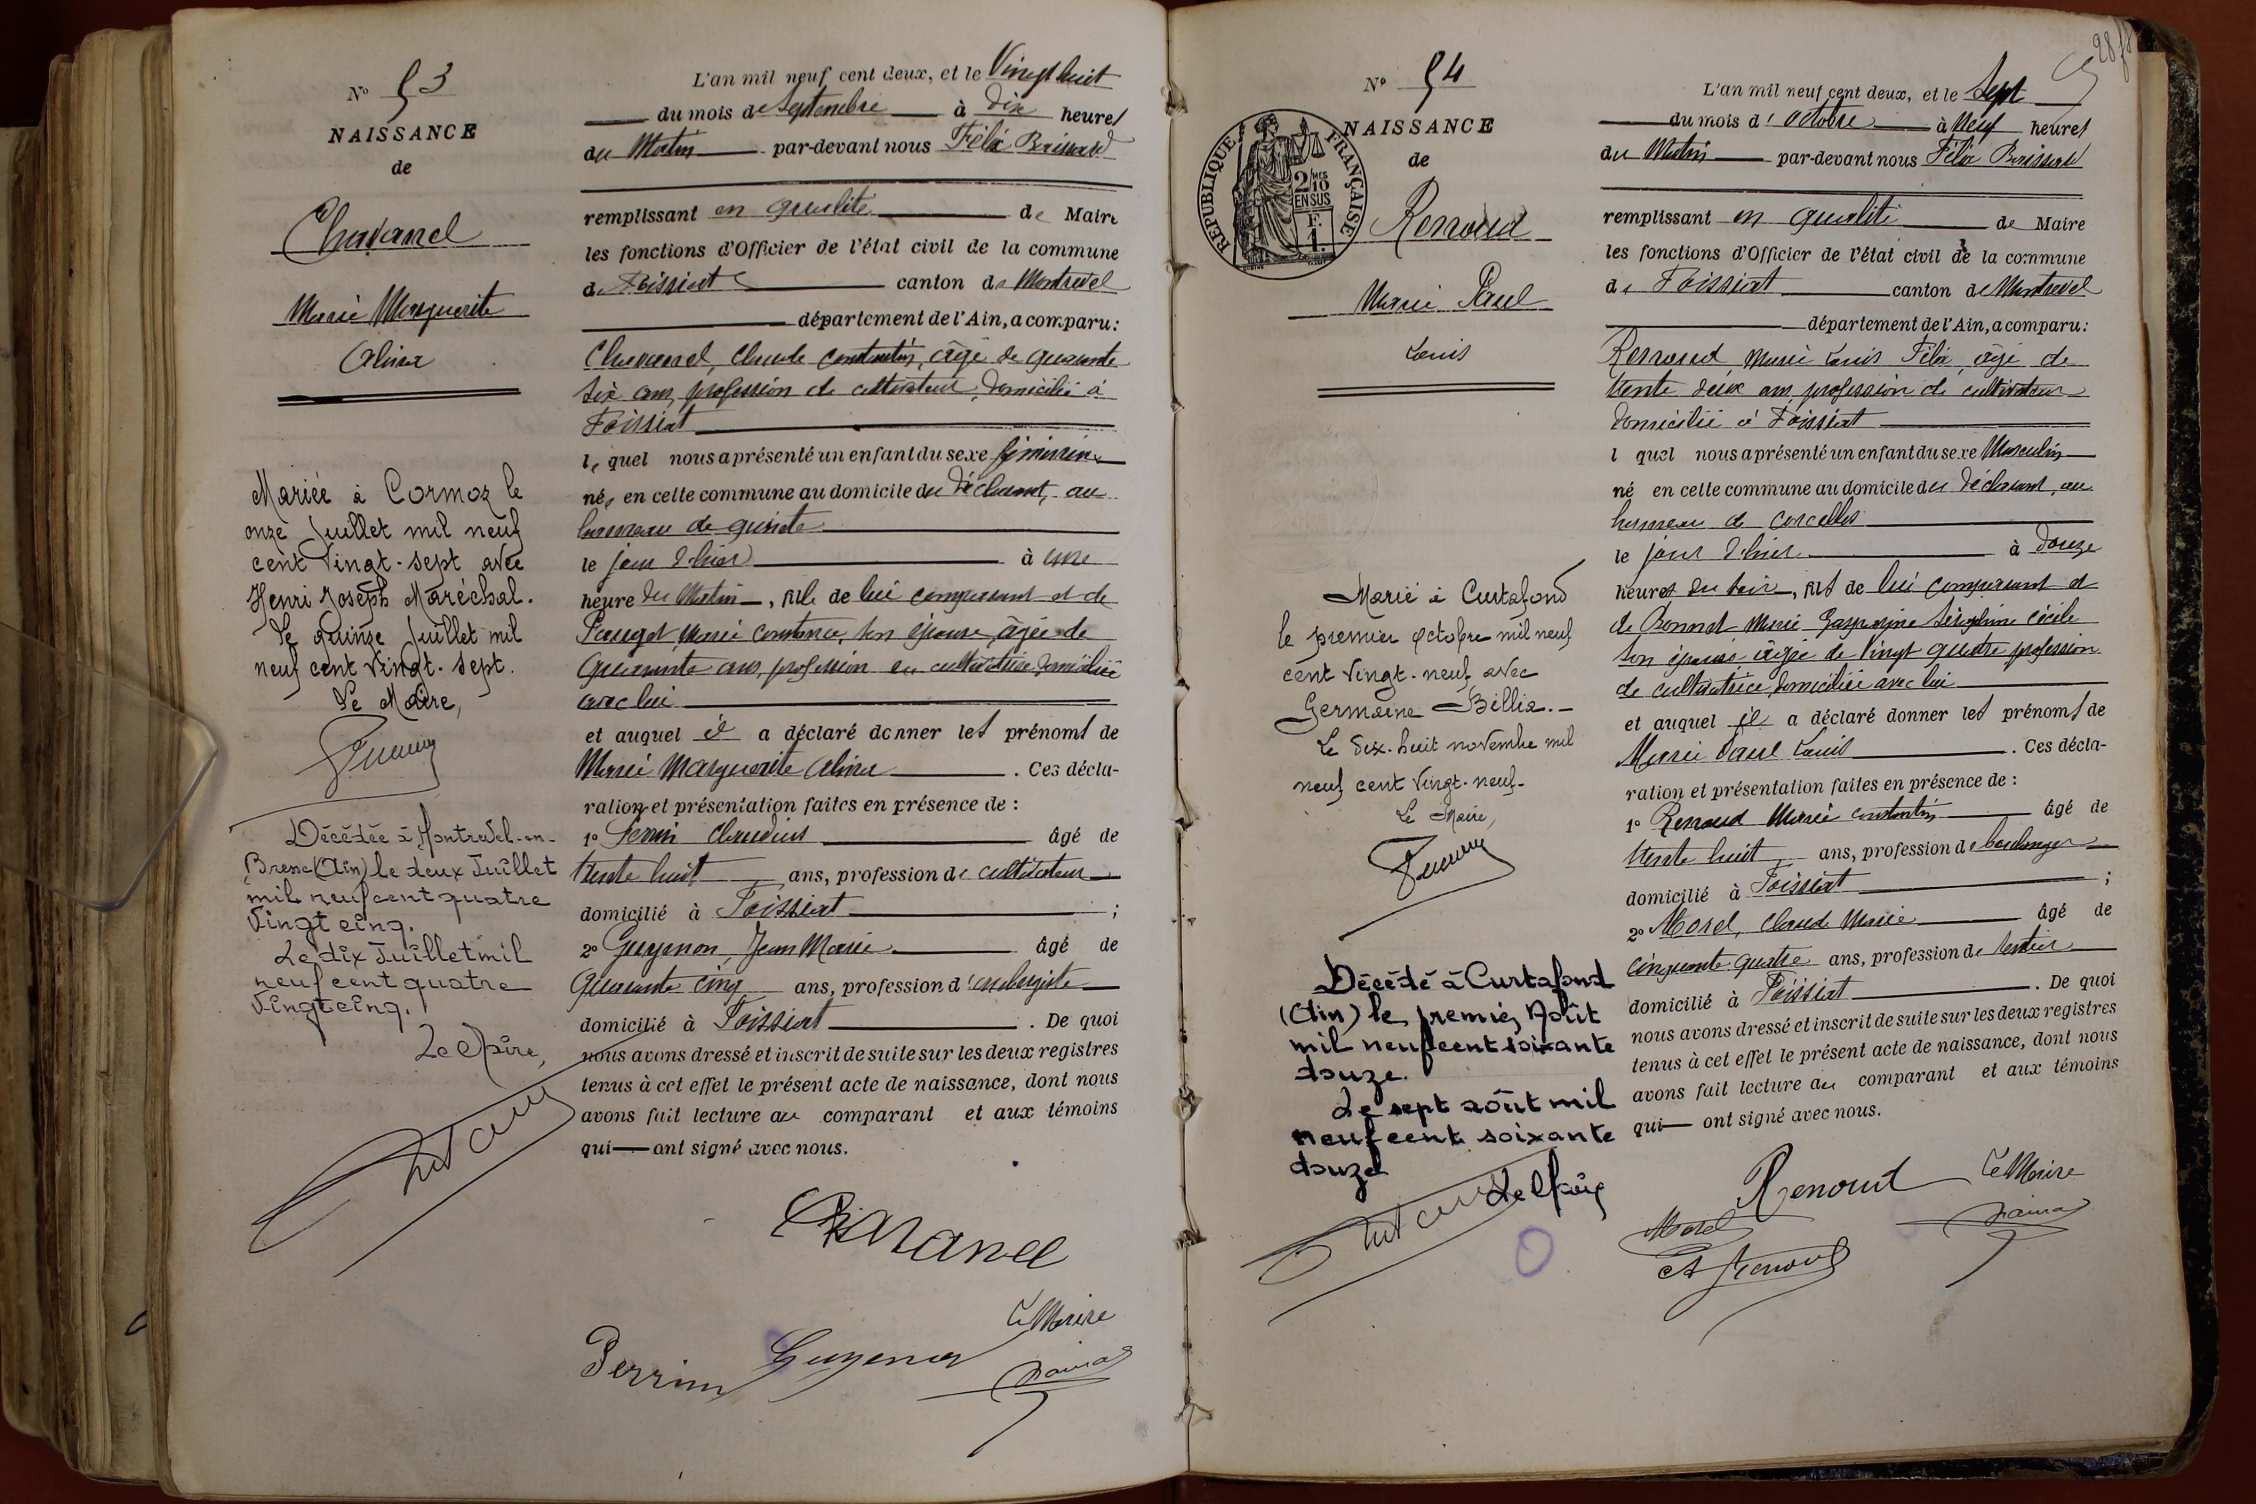 Nº 53
NAISSANCE
de
Chavanel
Marie Marguerite
Alina
Mariée à Cormoz le
onze Juillet mil neuf
cent vingt-sept avec
Henri Joseph Maréchal.
Le quinze Juillet mil
neuf cent vingt-sept.
Le Maire,
Décédée à Montrevel-en-
Bresse (Ain) le deux Juillet
mil neuf cent quatre
vingt cinq.
Le dix Juillet mil
neuf cent quatre
vingt cinq.
Le Maire,
L'an mil neuf cent deux, et le Vingt huit
du mois de Septembre à dix heures
du Matin par-devant nous Félix
remplissant en qualité de Maire
les fonctions d'Officier de l'état civil de la commune
de Foissiat canton de Montrevel
département de l'Ain, a comparu:
Chavanel, Claude Constantin, âgé de quarante
six ans, profession de cultivateur, domicilié à
Foissiat
le quel nous a présenté un enfant du sexe féminin
née en cette commune au domicile du déclarant, au
hameau de
le jour d'hier à une
heure du Matin, fille de lui comparant et de
Pauget, Marie Constance, son épouse, âgée de
quarante ans, profession de cultivatrice, domiciliée
avec lui
et auquel il a déclaré donner les prénoms de
Marie Marguerite Alina. Ces décla-
ration et présentation faites en présence de :
1º Perrin Claudius âgé de
trente huit ans, profession de cultivateur
domicilié à Foissiat ;
2º Guyenon, Jean Marie âgé de
quarante cinq ans, profession d'aubergiste
domicilié à Foissiat. De quoi
nous avons dressé et inscrit de suite sur les deux registres
tenus à cet effet le présent acte de naissance, dont nous
avons fait lecture au comparant et aux témoins
qui ont signé avec nous.
Chavanel
Le Maire
Perrin Guyenon
28
Nº 54
NAISSANCE
de
REPUBLIQUE FRANÇAISE
2/10 MES
EN SUS
F.
1.
Renoud
Marie Paul
Louis
Marié à Curtafond
le premier octobre mil neuf
cent vingt-neuf avec
Germaine Billia.
Le dix-huit novembre mil
neuf cent vingt-neuf
Le Maire,
Décédé à Curtafond
(Ain) le premier Août
mil neuf cent soixante
douze.
Le sept août mil
neuf cent soixante
douze
L'an mil neuf cent deux, et le Sept
du mois d'octobre à neuf heures
du Matin par-devant nous Félix
remplissant en qualité de Maire
les fonctions d'Officier de l'état civil de la commune
de Foissiat canton de Montrevel
département de l'Ain, a comparu:
Renoud Marie Louis Félix, âgé de
trente deux ans, profession de cultivateur
domicilié à Foissiat
l quel nous a présenté un enfant du sexe Masculin
né en cette commune au domicile du déclarant, au
hameau de Corcelles
le jour d'hier à douze
heures du soir, fils de lui comparant et
de Bonnet, Marie Séraphine Cécile
son épouse, âgée de vingt quatre profession
de cultivatrice, domiciliée avec lui
et auquel il a déclaré donner les prénoms de
Marie Paul Louis. Ces décla-
ration et présentation faites en présence de :
1º Renoud Marie Constantin âgé de
trente huit ans, profession de boulanger
domicilié à Foissiat ;
2º Morel, Claude Marie âgé de
cinquante quatre ans, profession de rentier
domicilié à Foissiat. De quoi
nous avons dressé et inscrit de suite sur les deux registres
tenus à cet effet le présent acte de naissance, dont nous
avons fait lecture au comparant et aux témoins
qui ont signé avec nous.
Renoud Le Maire
Morel
Renoud